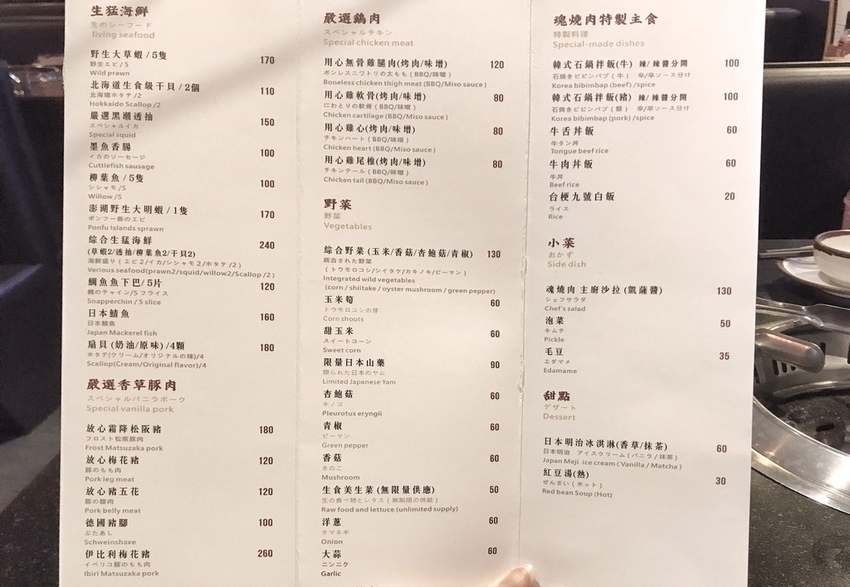 生猛海鮮
生のシーフード
living seafood
野生大草蝦/5隻 170
野生エビ/5
Wild prawn
北海道生食級干貝/2個 110
北海道ホタテ/2
Hokkaido Scallop /2
嚴選黑潮透抽 150
スペシャルイカ
Special squid
墨魚香腸 100
イカのソーセージ
Cuttlefish sausage
柳葉魚/5隻 100
シシャモ/5
Willow /5
澎湖野生大明蝦/1隻 170
ポンフー島のエビ
Ponfu Islands sprawn
綜合生猛海鮮 240
(草蝦2/透抽/柳葉魚2/干貝2)
海鮮盛り(エビ2/イカ/シシャモ2/ホタテ/2)
Verious seafood(prawn2/squid/willow2/Scallop /2)
鯛魚魚下巴/5片 120
鯛のチャイン/5フライス
Snapperchin / 5 slice
日本鯖魚 160
日本鯖魚
Japan Mackerel fish
扇貝(奶油/原味)/4顆 180
ホタテ(クリーム/オリジナルの味)/4
Scallop(Cream/Original flavor)/4
嚴選香草豚肉
スペシャルバニラポーク
Special vanilla pork
放心霜降松阪豬 180
フロスト松阪豚肉
Frost Matsuzaka pork
放心梅花豬 120
豚のもも肉
Pork leg meat
放心豬五花 120
豚の腹肉
Pork belly meat
德國豬腳 100
ぶたあし
Schweinshaxe
伊比利梅花豬 260
イベリコ豚のもも肉
Ibiri Matsuzaka pork
嚴選鷄肉
スペシャルチキン
Special chicken meat
用心無骨雞腿肉(烤肉/味增) 120
ボンレスニワトリの太もも(BBQ/味噌)
Boneless chicken thigh meat (BBQ/Miso sauce)
用心雞軟骨(烤肉/味增) 80
にわとりの軟骨(BBQ/味噌)
Chicken cartilage (BBQ/Miso sauce)
用心雞心(烤肉/味增) 80
チキンハート(BBQ/味噌)
Chicken heart (BBQ/Miso sauce)
用心雞尾椎(烤肉/味增) 80
チキンテール(BBQ/味噌)
Chicken tail (BBQ/Miso sauce)
野菜
野菜
Vegetables
綜合野菜(玉米/香菇/杏鮑菇/青椒) 130
統合された野菜
(トウモロコシ/シイタケ/カキノキ/ピーマン)
Integrated wild vegetables
(corn / shiitake / oyster mushroom / green pepper)
玉米筍 60
トウモロコシの芽
Corn shoots
甜玉米 60
スイートコーン
Sweet corn
限量日本山藥 90
限られた日本のヤム
Limited Japanese Yam
杏鮑菇 60
キノコ
Pleurotus eryngii
青椒 60
ピーマン
Green pepper
香菇 60
きのこ
Mushroom
生食美生菜(無限量供應) 50
生の食べ物とレタス(無制限の供給)
Raw food and lettuce (unlimited supply)
洋蔥 60
タマネギ
Onion
大蒜 60
ニンニク
Garlic
魂燒肉特製主食
特製料理
Special-made dishes
韓式石鍋拌飯(牛) 辣/辣醬分開 100
石焼きビビンバプ(牛) 辛/辛ソース分け
Korea bibimbap (beef) /spice
韓式石鍋拌飯(豬) 辣/辣醬分開 100
石焼きビビンバプ(豚) 辛/辛ソース分け
Korea bibimbap (pork) /spice
牛舌丼飯 60
牛タン丼
Tongue beef rice
牛肉丼飯 60
牛丼
Beef rice
台梗九號白飯 20
ライス
Rice
小菜
おかず
Side dish
魂燒肉 主廚沙拉(凱薩醬) 130
シェフサラダ
Chef's salad
泡菜 50
キムチ
Pickle
毛豆 35
エダマメ
Edamame
甜點
デザート
Dessert
日本明治冰淇淋(香草/抹茶) 60
日本明治 アイスクリーム(バニラ/抹茶)
Japan Meji ice cream (Vanilla / Matcha)
紅豆湯(熱) 30
ぜんざい(ホット)
Red bean Soup (Hot)